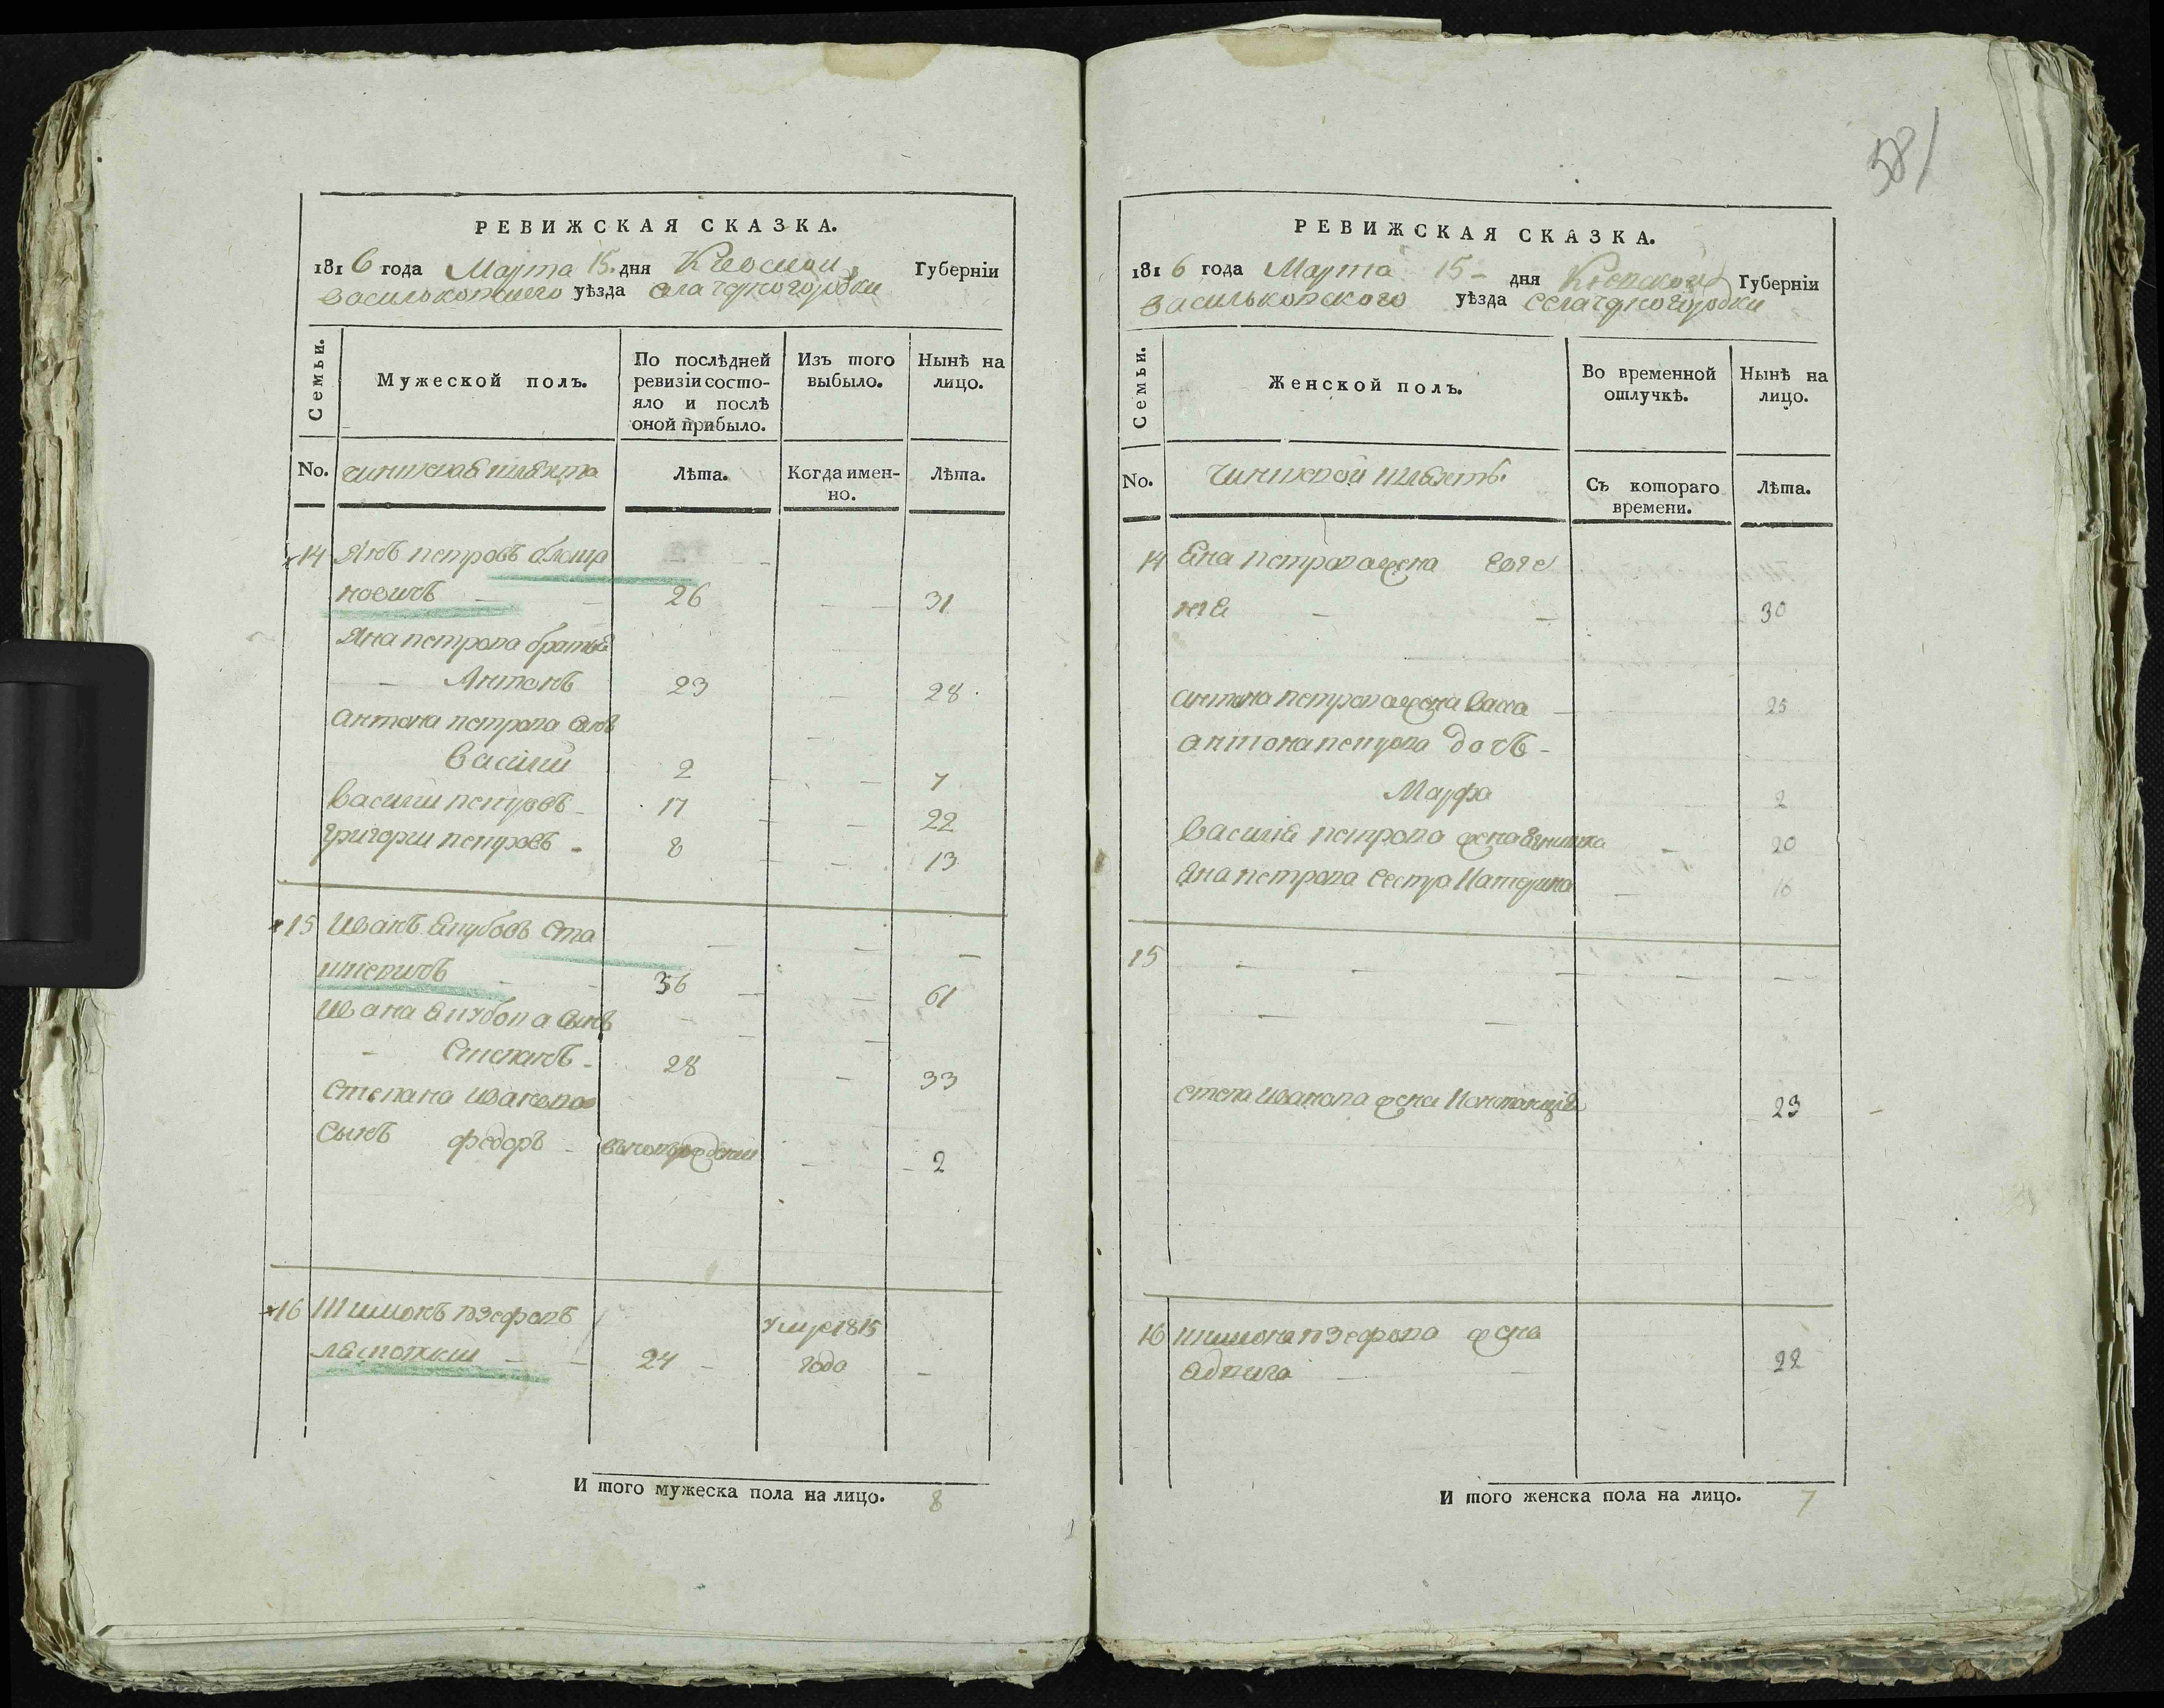 581
РЕВИЖСКАЯ СКАЗКА.
1816 года Марта 15. дня Киевской Губерніи
Васильковского уѣзда села Чорногородки
Семьи.
Мужеской полъ.
По послѣдней ревизіи состояло и послѣ оной прибыло.
Изъ того выбыло.
Нынѣ на лицо.
No. чиншевая шляхта Лѣта. Когда именно. Лѣта.
14 Янъ петровъ
новичъ 26 31
Яна петрова братья
Антонъ 23 28
Антона петрова сынъ
Василий 2 7
Василий петровъ 17 22
Григорий петровъ 8 13
15 Иванъ Якубовъ Ста
шкевичъ 36 61
Ивана Якубова сынъ
Степанъ 28 33
Степана Иванова
сынъ федоръ новорожденый 2
16 Шимонъ юзефовъ умре 1815
24 года
И того мужеска пола на лицо. 8
РЕВИЖСКАЯ СКАЗКА.
1816 года Марта 15 дня Киевской Губерніи
Васильковского уѣзда села Чорногородки
Семьи.
Женской полъ.
Во временной отлучкѣ.
Нынѣ на лицо.
No. чиншевой шляхты. Съ котораго времени. Лѣта.
14 Яна петрова жена Евге
ния 30
Антона петрова жена Васса 25
Антона петрова дочь
Марфа 2
Василия петрова жена Ягнишка 20
Яна петрова сестра Катерина 16
15
Степа Иванова жена Констанция 23
16 Шимона юзефова жена
22
И того женска пола на лицо. 7